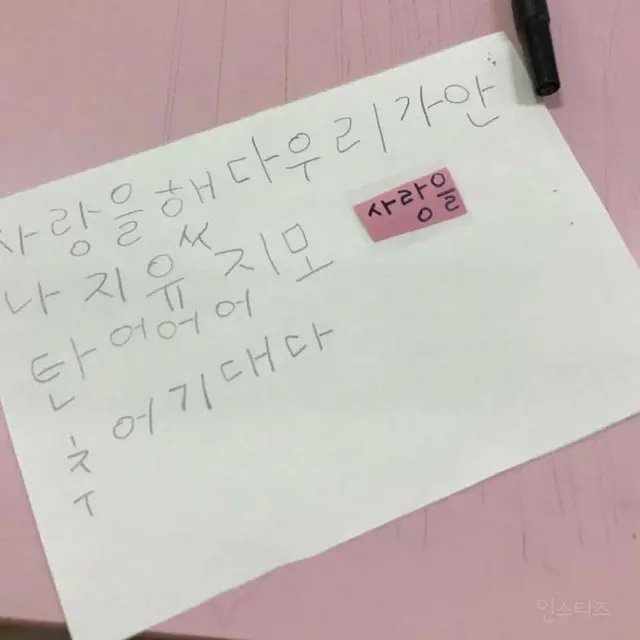 사랑을했다우리가안
사랑을
나지유지모
탄어어어
추어기대다
인스티즈